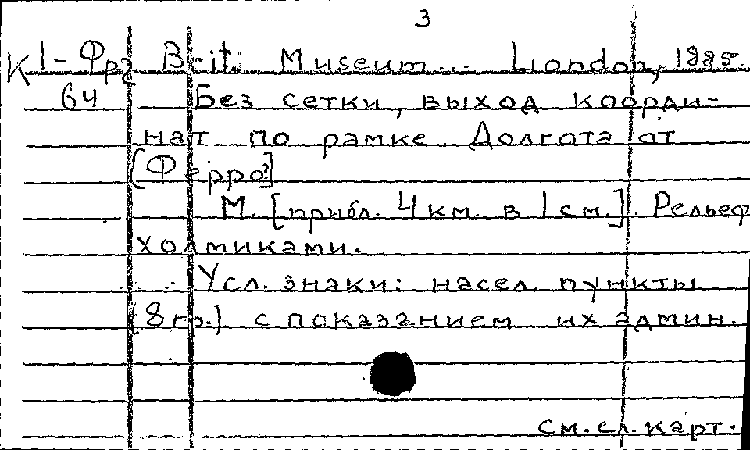 3
К 1-Фр2 Brit. Museum... London, 1885.
64 Без сетки, выход коорди-
нат по рамке. Долгота от
[Ферро?]
М. [прибл. 4 км. в 1 см.]. Рельеф
холмиками.
Усл. знаки: насел. пункты
(8 гр.) с показанием их админ.
См. сл. карт.